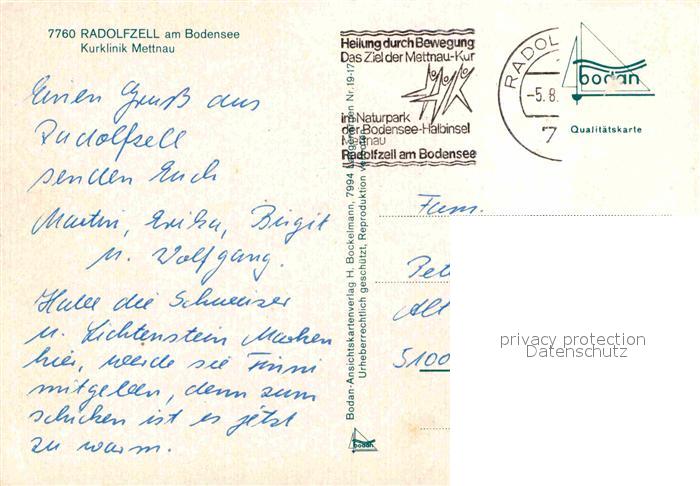 7760 RADOLFZELL am Bodensee
Kurklinik Mettnau
Einen Gruß aus
Radolfzell
senden Euch
Martin, Erika, Birgit
u. Wolfgang.
Habe die Schweizer
u. Lichtenstein Marken
hier, werde sie
mitgeben, denn zum
schicken ist es jetzt
zu warm.
Bodan-Ansichtskartenverlag H. Bockelmann, 7994 Langenargen Nr. 19-17
Urheberrechtlich geschützt, Reproduktion verboten
bodan
Heilung durch Bewegung
Das Ziel der Mettnau-Kur
im Naturpark
der Bodensee-Halbinsel
Mettnau
Radolfzell am Bodensee
RADOL
-5.8.
7
bodan
Qualitätskarte
Fam.
Pet
Alt
5100
privacy protection
Datenschutz